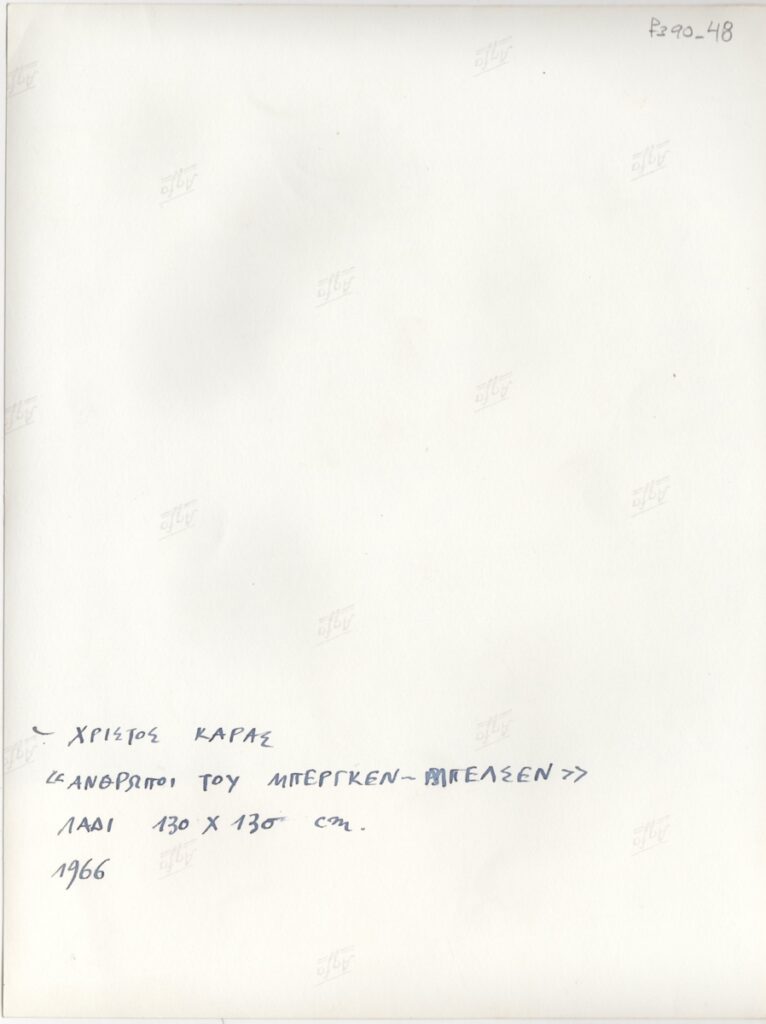 P390-48
~ ΧΡΙΣΤΟΣ ΚΑΡΑΣ
<<ΑΝΘΡΩΠΟΙ ΤΟΥ ΜΠΕΡΓΚΕΝ-ΜΠΕΛΣΕΝ>>
ΛΑΔΙ 130 X 130 cm.
1966